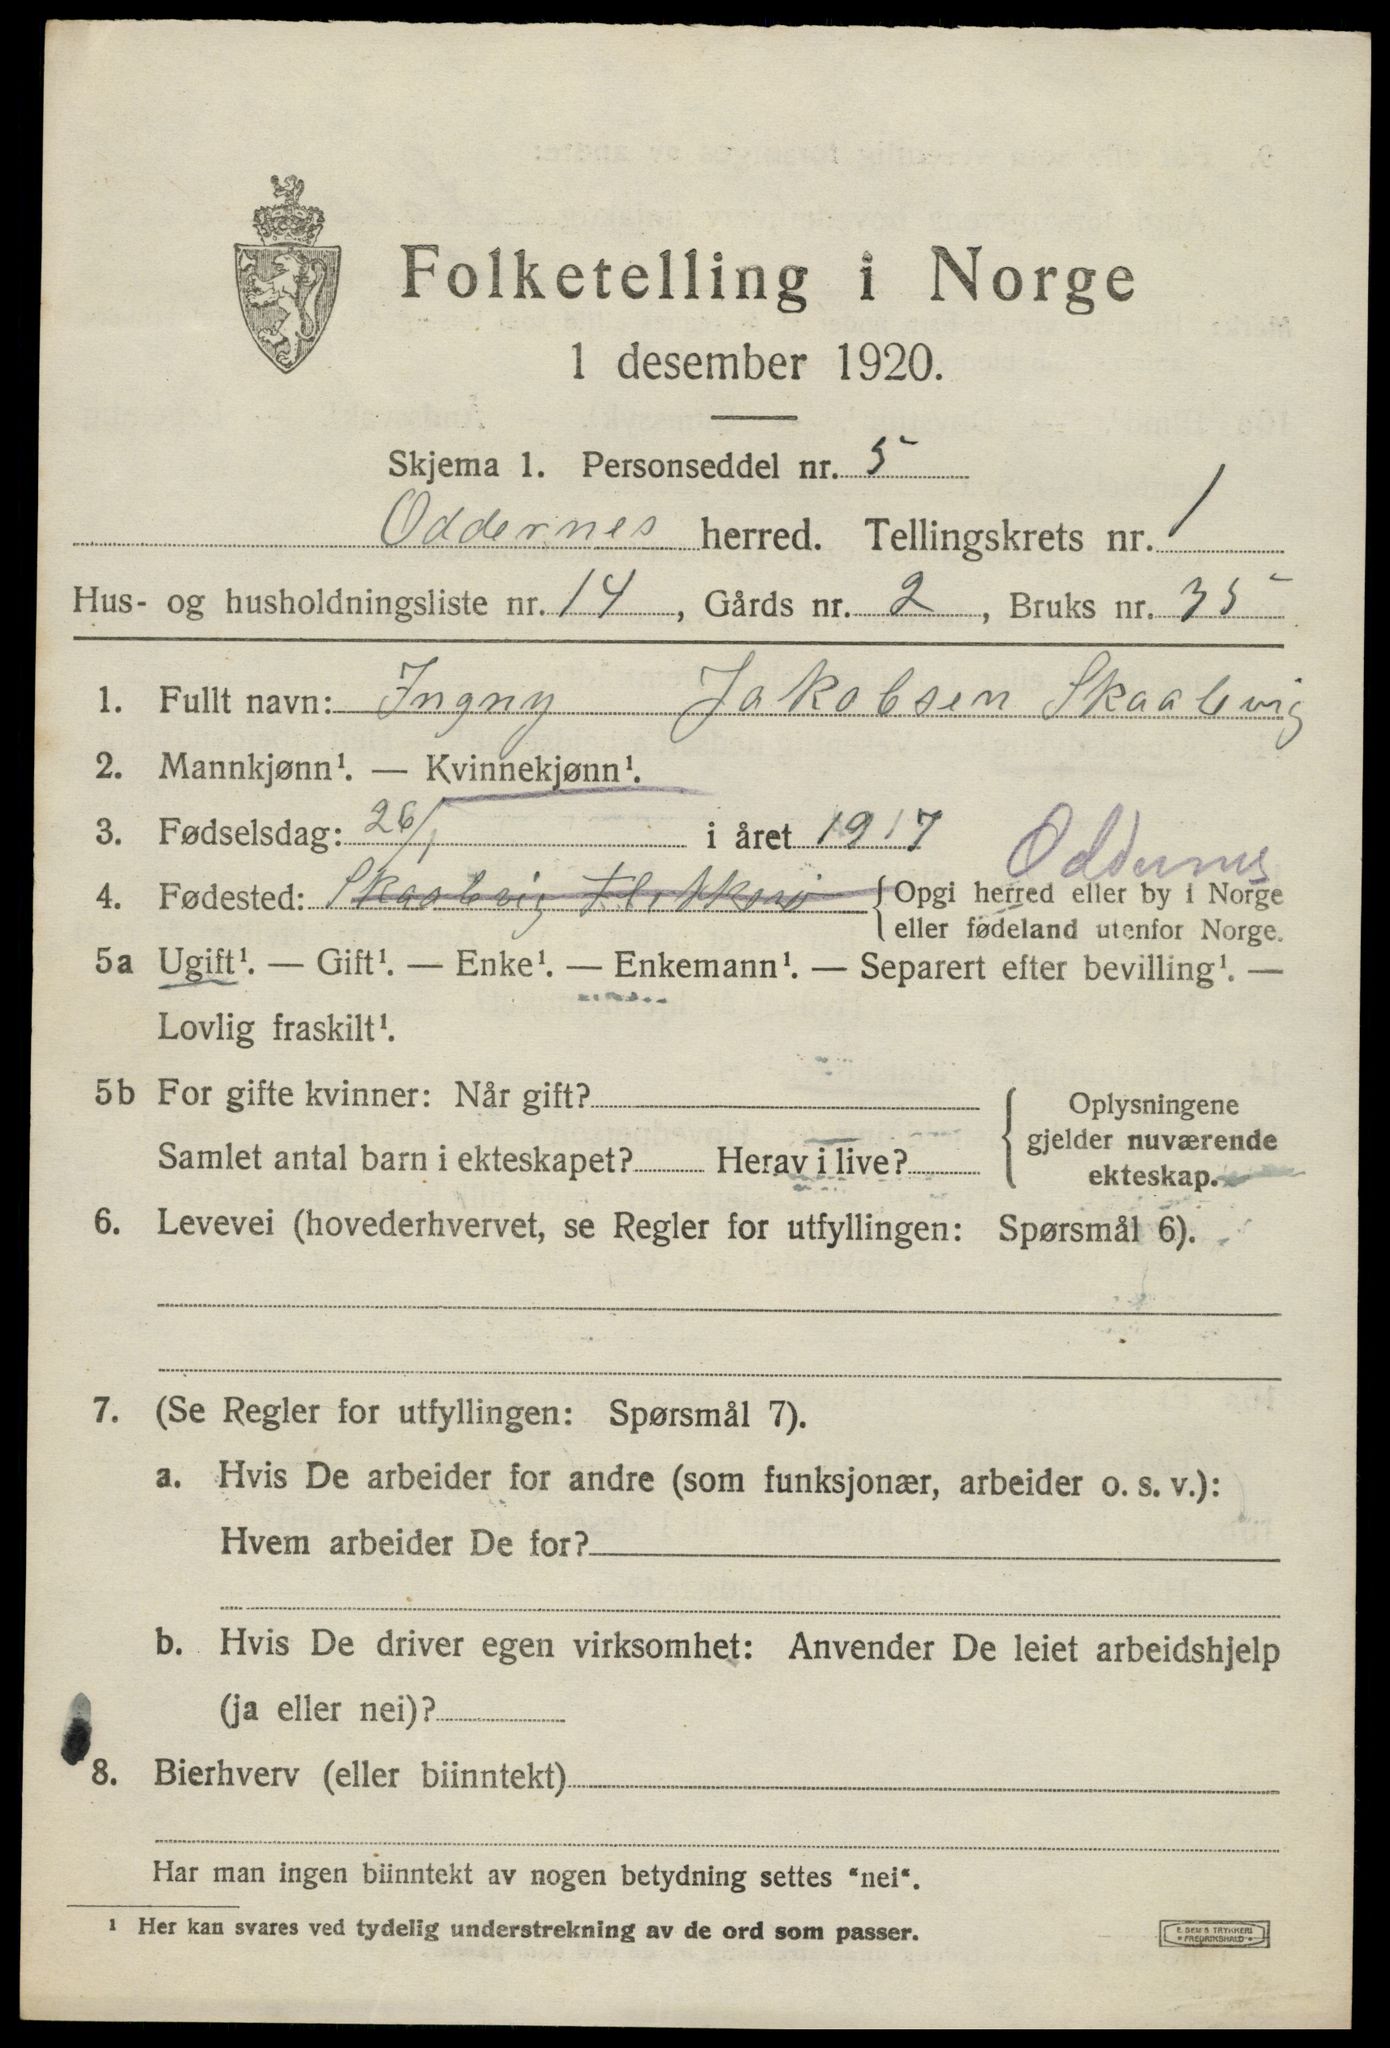 Folketelling i Norge
1 desember 1920.
Skjema 1. Personseddel nr. 5
Oddernes herred. Tellingskrets nr. 1
Hus- og husholdningsliste nr. 14, Gårds nr. 2, Bruks nr. 35
1. Fullt navn: Ingny Jakobsen Skaalevig
2. Mannkjønn¹. — Kvinnekjønn¹.
3. Fødselsdag: 26/1 i året 1917
Oddernes
4. Fødested: Skaalevig Flekkerø { Opgi herred eller by i Norge
eller fødeland utenfor Norge.
5a Ugift¹. — Gift¹. — Enke¹. — Enkemann¹. — Separert efter bevilling¹. —
Lovlig fraskilt¹.
5b For gifte kvinner: Når gift?
Samlet antal barn i ekteskapet? Herav i live?
Oplysningene
gjelder nuværende
ekteskap.
6. Levevei (hovederhvervet, se Regler for utfyllingen: Spørsmål 6).
7. (Se Regler for utfyllingen: Spørsmål 7).
a. Hvis De arbeider for andre (som funksjonær, arbeider o. s. v.):
Hvem arbeider De for?
b. Hvis De driver egen virksomhet: Anvender De leiet arbeidshjelp
(ja eller nei)?
8. Bierhverv (eller biinntekt)
Har man ingen biinntekt av nogen betydning settes “nei“.
¹ Her kan svares ved tydelig understrekning av de ord som passer.
E. SEM'S TRYKKERI
* FREDRIKSHALD *